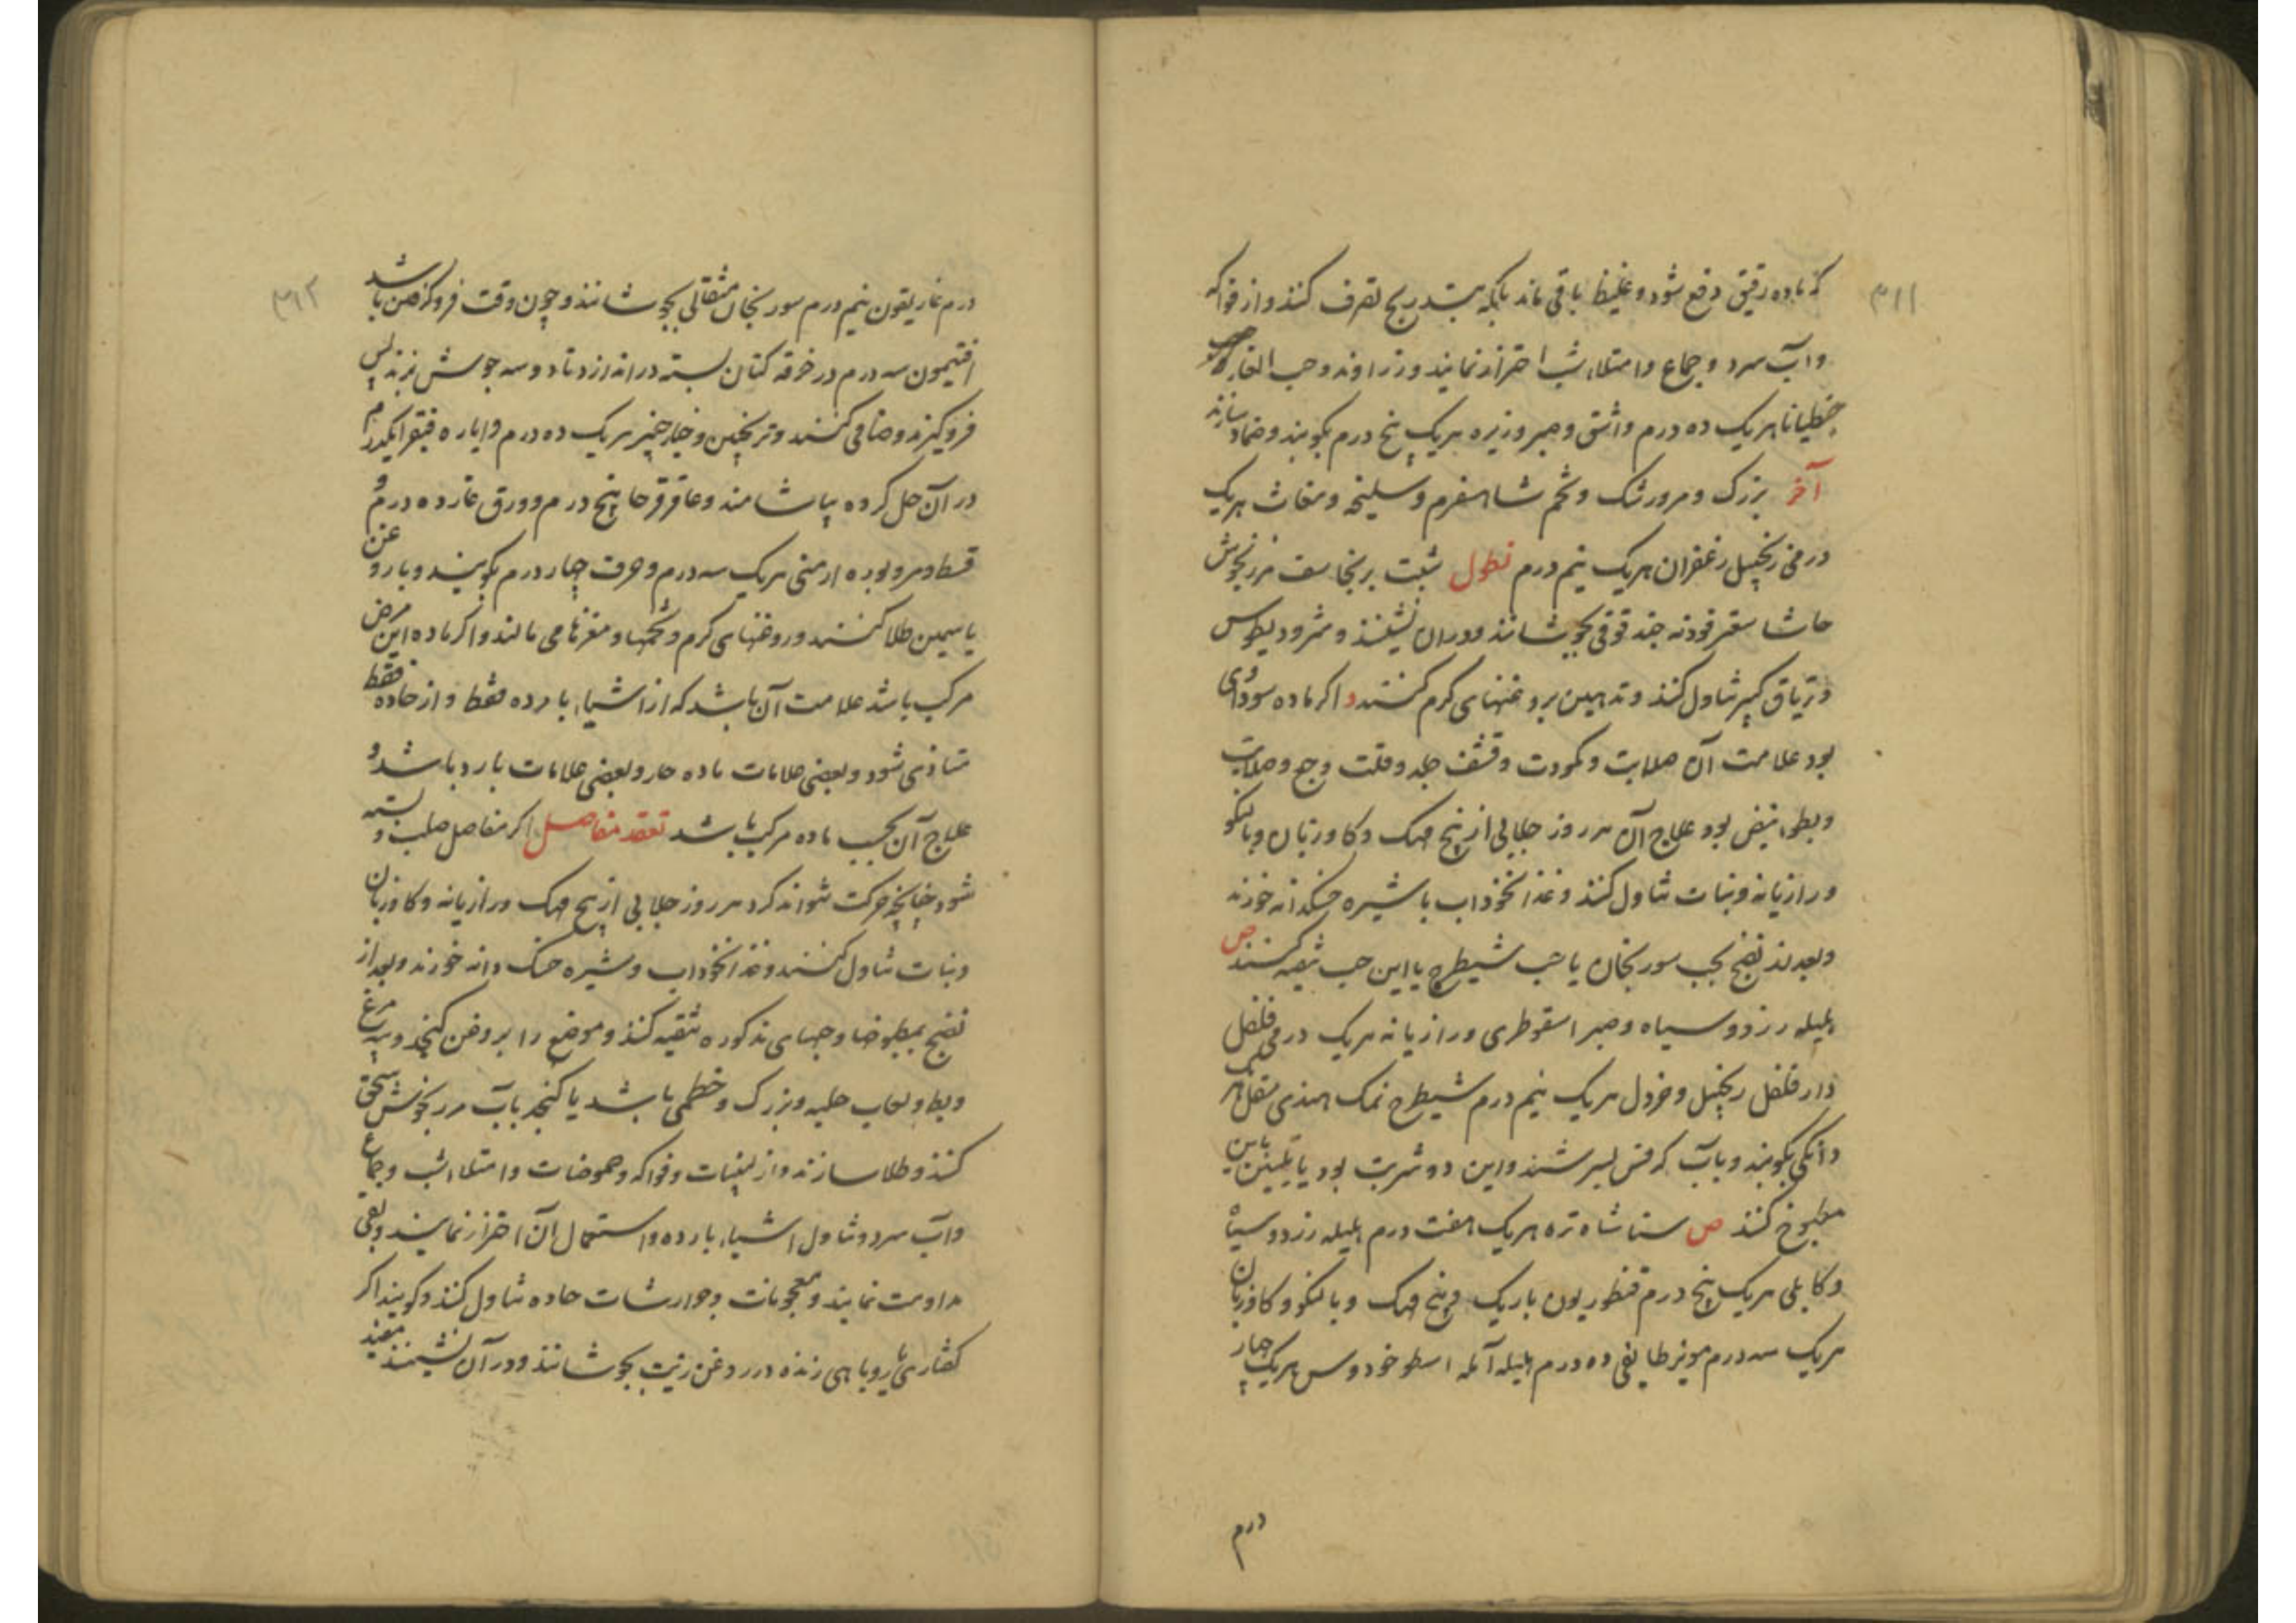 ۳۱۱
که ماده رقیق دفع شود و غلیظ باقی ماند بلکه بتدریج تصرف کنند و از فواکه
و آب سرد و جماع و امتلاء شب احتراز نمایند و زراوند و حب الغار
جنطیانا هریک ده درم واشق و صبر و زیره هریک پنج درم بکوبند و ضماد سازند
آخر بزرک و مرورشک و تخم شاهسفرم و سلیخه و مغاث هریک
درمی زنجبیل زعفران هریک نیم درم نطول شبت برنجاسف مرزنجوش
حاشا سعتر فودنه جندقوقی بجوشانند و دران نشینند و مثرودیطوس
و تریاق کبیر تناول کنند و تدهین بروغنهای کرم کنند و اکر ماده سوداوی
بود علامت آن صلابت و کمودت و قشف جلد و قلت وجع و صلابت
و بطوء نبض بود علاج آن هر روز جلابی از بیخ مهک و کاوزبان و بالنکو
و رازیانه و نبات تناول کنند و غذا نخوداب با شیره خسکدانه خورند
و بعد نضج بحب سورنجان یا حب شیطرج یا این حب تنقیه کنند ص
هلیله زرد و سیاه و صبر اسقوطری و رازیانه هریک درمی فلفل
دارفلفل زنجبیل و خردل هریک نیم درم شیطرج نمک هندی مقل هریک
دانکی بکوبند و بآب کرفس بسرشند و این دو شربت بود یا تلیین باین
مطبوخ کنند ص سنا شاه تره هریک هفت درم هلیله زرد و سیاه
و کابلی هریک پنج درم قنطوریون باریک و بیخ مهک و بالنکو و کاوزبان
هریک سه درم مویز طایفی ده درم هلیله آمله اسطوخودوس هریک چهار
درم
۳۱۲
درم غاریقون نیم درم سورنجان مثقالی بجوشانند و چون وقت فروکرفتن باشد
افتیمون سه درم در خرقه کتان بسته دراندازند تا دو سه جوش بزند پس
فروکیرند و صافی کنند و ترنجبین و خیارچنبر هریک ده درم و ایاره فیقرا یکدرم
در آن حل کرده بیاشامند و عاقرقرحا پنج درم و ورق غار ده درم و
قسط و مر و بوره ارمنی هریک سه درم و حرف چهار درم بکوبند و با روغن
یاسمین طلا کنند و روغنهای کرم و شحمها و مغزها می مالند و اکر ماده این مرض
مرکب باشد علامت آن باشد که از اشیاء بارده فقط و از حاده فقط
متاذی شود و بعضی علامات ماده حار و بعضی علامات بارد باشد و
علاج آن بحسب ماده مرکب باشد تعقد مفاصل اکر مفاصل صلب و بسته
شود چنانچه حرکت نتواند کرد هر روز جلابی از بیخ مهک و رازیانه و کاوزبان
و نبات تناول کنند و غذا نخوداب و شیره خسک دانه خورند و بعد از
نضج بمطبوخها و حبهای مذکوره تنقیه کنند و موضع را بروغن کنجد و پیه مرغ
و بط و لعاب حلبه و بزرک و خطمی باشد یا کنجد بآب مرزنجوش سحق
کنند و طلا سازند و از لبنیات و فواکه و حموضات و امتلاء شب و جماع
و آب سرد و تناول اشیاء بارده و استعمال آن احتراز نمایند و بقی
مداومت نمایند و معجونات و جوارشات حاده تناول کنند و کویند اکر
کفتاری یا روباهی زنده در روغن زیت بجوشانند و در آن نشینند مفید